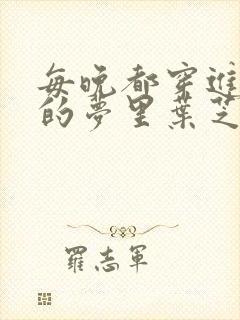 每晚都穿進
的夢里葉芝
羅志軍